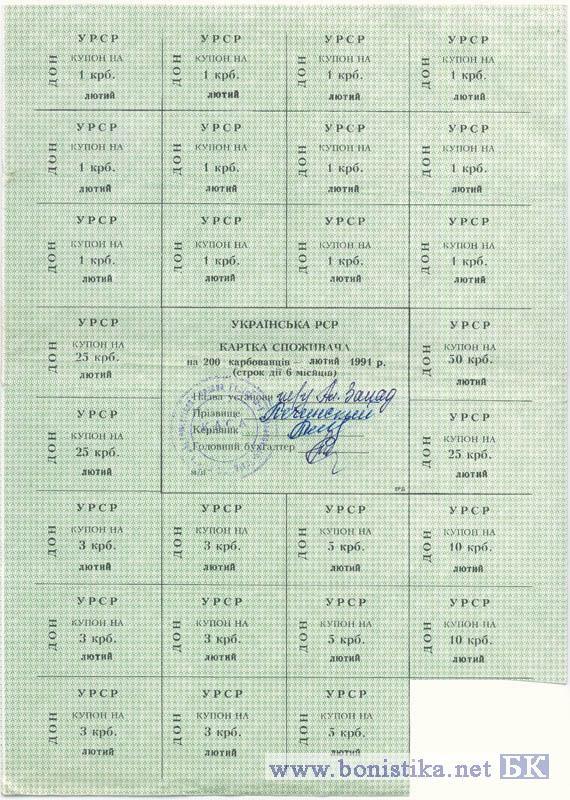 УРСР УРСР УРСР УРСР
ДОН КУПОН НА ДОН КУПОН НА ДОН КУПОН НА ДОН КУПОН НА
1 крб. 1 крб. 1 крб. 1 крб.
лютий лютий лютий лютий
УРСР УРСР УРСР УРСР
ДОН КУПОН НА ДОН КУПОН НА ДОН КУПОН НА ДОН КУПОН НА
1 крб. 1 крб. 1 крб. 1 крб.
лютий лютий лютий лютий
УРСР УРСР УРСР УРСР
ДОН КУПОН НА ДОН КУПОН НА ДОН КУПОН НА ДОН КУПОН НА
1 крб. 1 крб. 1 крб. 1 крб.
лютий лютий лютий лютий
УРСР
ДОН КУПОН НА
25 крб.
лютий
УКРАЇНСЬКА РСР
КАРТКА СПОЖИВАЧА
на 200 карбованців - лютий 1991 р.
(строк дії 6 місяців)
Назва установи Запад
Прізвище
Керівник
Головний бухгалтер
м/п
УРСР
ДОН КУПОН НА
50 крб.
лютий
УРСР
ДОН КУПОН НА
25 крб.
лютий
УРСР
ДОН КУПОН НА
25 крб.
лютий
УРСР УРСР УРСР УРСР
ДОН КУПОН НА ДОН КУПОН НА ДОН КУПОН НА ДОН КУПОН НА
3 крб. 3 крб. 5 крб. 10 крб.
лютий лютий лютий лютий
УРСР УРСР УРСР УРСР
ДОН КУПОН НА ДОН КУПОН НА ДОН КУПОН НА ДОН КУПОН НА
3 крб. 3 крб. 5 крб. 10 крб.
лютий лютий лютий лютий
УРСР УРСР УРСР
ДОН КУПОН НА ДОН КУПОН НА ДОН КУПОН НА
3 крб. 3 крб. 5 крб.
лютий лютий лютий
www.bonistika.net БК